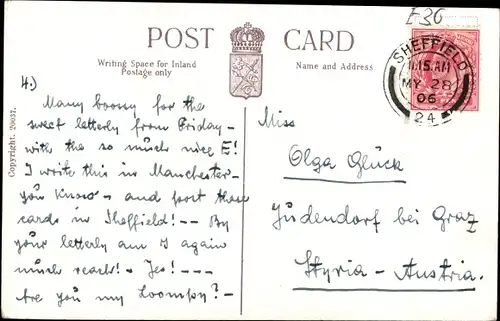 £30
POST CARD
Writing Space for Inland
Postage only
Name and Address
SHEFFIELD
11.15 AM
MY 28
06
24
Copyright. 20037.
4.)
Many boossy for the
sweet letterly from Friday –
with the so much nice E!
I write this in Manchester –
you know – and post these
cards in Sheffield! –– By
your letterly am I again
much reach! – Yes! –––
Are you my Loompy? –
Miss
Olga Glück
Judendorf bei Graz
Styria – Austria.